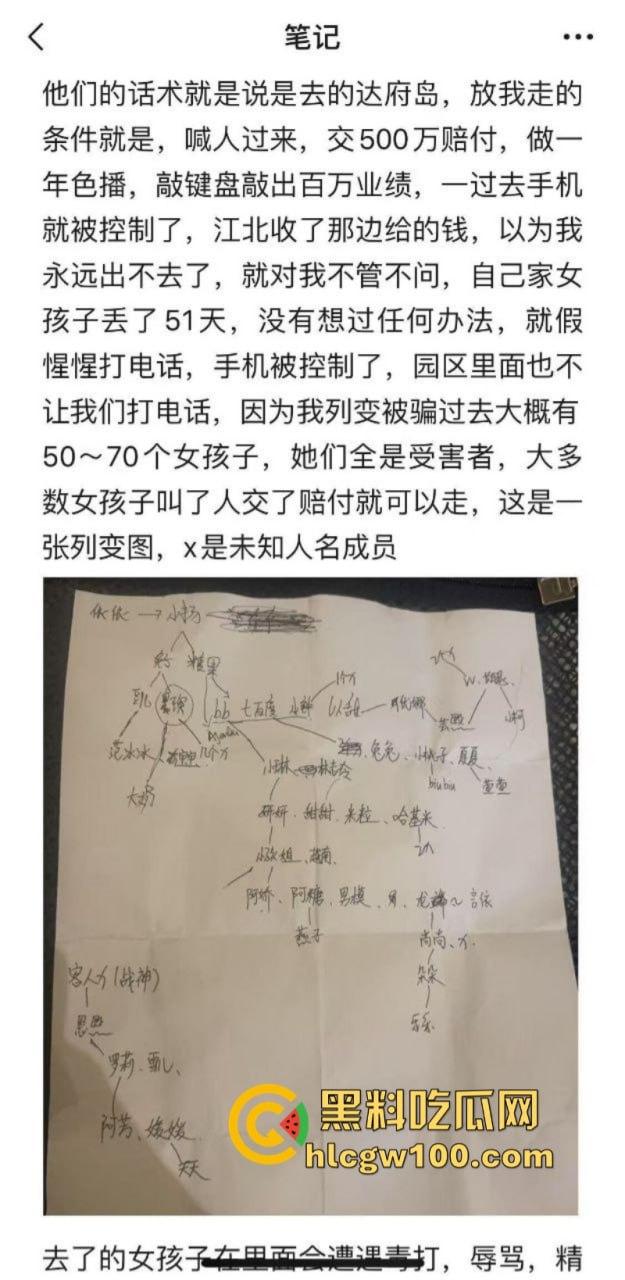 笔记
他们的话术就是说是去的达府岛，放我走的
条件就是，喊人过来，交500万赔付，做一
年色播，敲键盘敲出百万业绩，一过去手机
就被控制了，江北收了那边给的钱，以为我
永远出不去了，就对我不管不问，自己家女
孩子丢了51天，没有想过任何办法，就假
惺惺打电话，手机被控制了，园区里面也不
让我们打电话，因为我列变被骗过去大概有
50～70个女孩子，她们全是受害者，大多
数女孩子叫了人交了赔付就可以走，这是一
张列变图，x是未知人名成员
依依 → 小杨
糖果
bb 七百度
范冰冰
兔兔、小桃子、夏夏
biubiu
小琳
研研、甜甜、米粒、哈基米
阿娇、阿糖、男模
燕子
尚尚、x.
朵朵
乐乐
客人x(战神)
罗莉、甄儿、
阿芳、媛媛
天天
黑料吃瓜网
hlcgw100.com
去了的女孩子在里面会遭遇毒打，辱骂，精